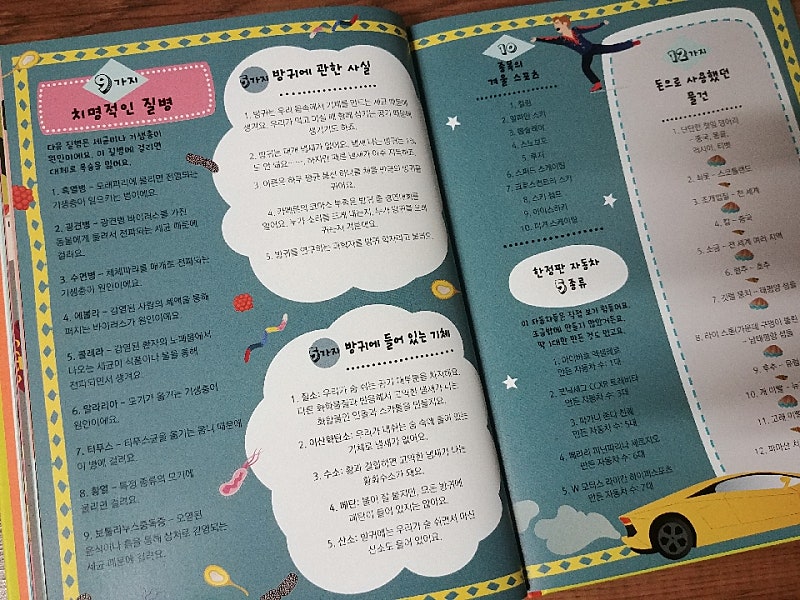 9가지
치명적인 질병
다음 질병은 세균이나 기생충이
원인이에요. 이 질병에 걸리면
대체로 목숨을 잃어요.
1. 흑열병 – 모래파리에 물리면 전염되는
기생충이 일으키는 병이에요.
2. 광견병 – 광견병 바이러스를 가진
동물에게 물려서 전파되는 세균 때문에
걸려요.
3. 수면병 – 체체파리를 매개로 전파되는
기생충이 원인이에요.
4. 에볼라 – 감염된 사람의 체액을 통해
퍼지는 바이러스가 원인이에요.
5. 콜레라 – 감염된 환자의 노폐물에서
나오는 세균이 식품이나 물을 통해
전파되면서 생겨요.
6. 말라리아 – 모기가 옮기는 기생충이
원인이에요.
7. 티푸스 – 티푸스균을 옮기는 몸니 때문에
이 병에 걸려요.
8. 황열 – 특정 종류의 모기에
물리면 걸려요.
9. 보툴리누스중독증 – 오염된
음식이나 흙을 통해 상처로 감염되는
세균 때문에 걸려요.
5가지 방귀에 관한 사실
1. 방귀는 우리 몸속에서 기체를 만드는 세균 때문에
생겨요. 우리가 먹고 마실 때 함께 삼키는 공기 때문에
생기기도 하죠.
2. 방귀는 대개 냄새가 없어요. 냄새 나는 방귀는 1%
도 안 돼요……, 하지만 때로 냄새가 아주 지독하죠.
3. 어른은 하루 평균 풍선 하나를 채울 만큼의 방귀를
뀌어요.
4. 카메룬의
5. 방귀를 연구하는 과학자를 방귀 학자라고 불러요.
5가지 방귀에 들어 있는 기체
1. 질소: 우리가 숨 쉬는 공기 대부분을 차지해요.
다른 화학물질과 반응해서 고약한 냄새가 나는
화합물인 인돌과 스카톨을 만들지요.
2. 이산화탄소: 우리가 내쉬는 숨 속에 들어 있는
기체로 냄새가 없어요.
3. 수소: 황과 결합하면 고약한 냄새가 나는
황화수소가 돼요.
4. 메탄: 불이 잘 붙지만, 모든 방귀에
메탄이 들어 있지는 않아요.
5. 산소: 방귀에는 우리가 숨 쉬면서 마신
산소도 들어 있어요.
10
종목의
겨울 스포츠
1. 컬링
2. 알파인 스키
3. 봅슬레이
4. 스노보드
5. 루지
6. 스피드 스케이팅
7. 크로스컨트리 스키
8. 스키 점프
9. 아이스하키
10. 피겨스케이팅
한정판 자동차
5종류
이 자동차들은 직접 보기 힘들어요.
조금밖에 만들지 않았거든요.
딱 1대만 만든 것도 있고요.
만든 자동차 수: 1대
2. 코닉세그 CCXR 트레비타
만든 자동차 수: 3대
만든 자동차 수: 5대
4. 페라리 피닌파리나 세르지오
만든 자동차 수: 6대
5. W 모터스 라이칸 하이퍼스포츠
만든 자동차 수: 7대
12가지
돈으로 사용했던
물건
1. 단단한 찻잎 덩어리
– 중국, 몽골,
러시아, 티벳
2. 쇠못 – 스코틀랜드
3. 조개껍질 – 전 세계
4. 칼 – 중국
5. 소금 – 전 세계 여러 지역
7. 깃털 뭉치 – 태평양 섬들
8. 라이 스톤(가운데 구멍이 뚫린
– 남태평양 섬들
9. 후추 – 유럽